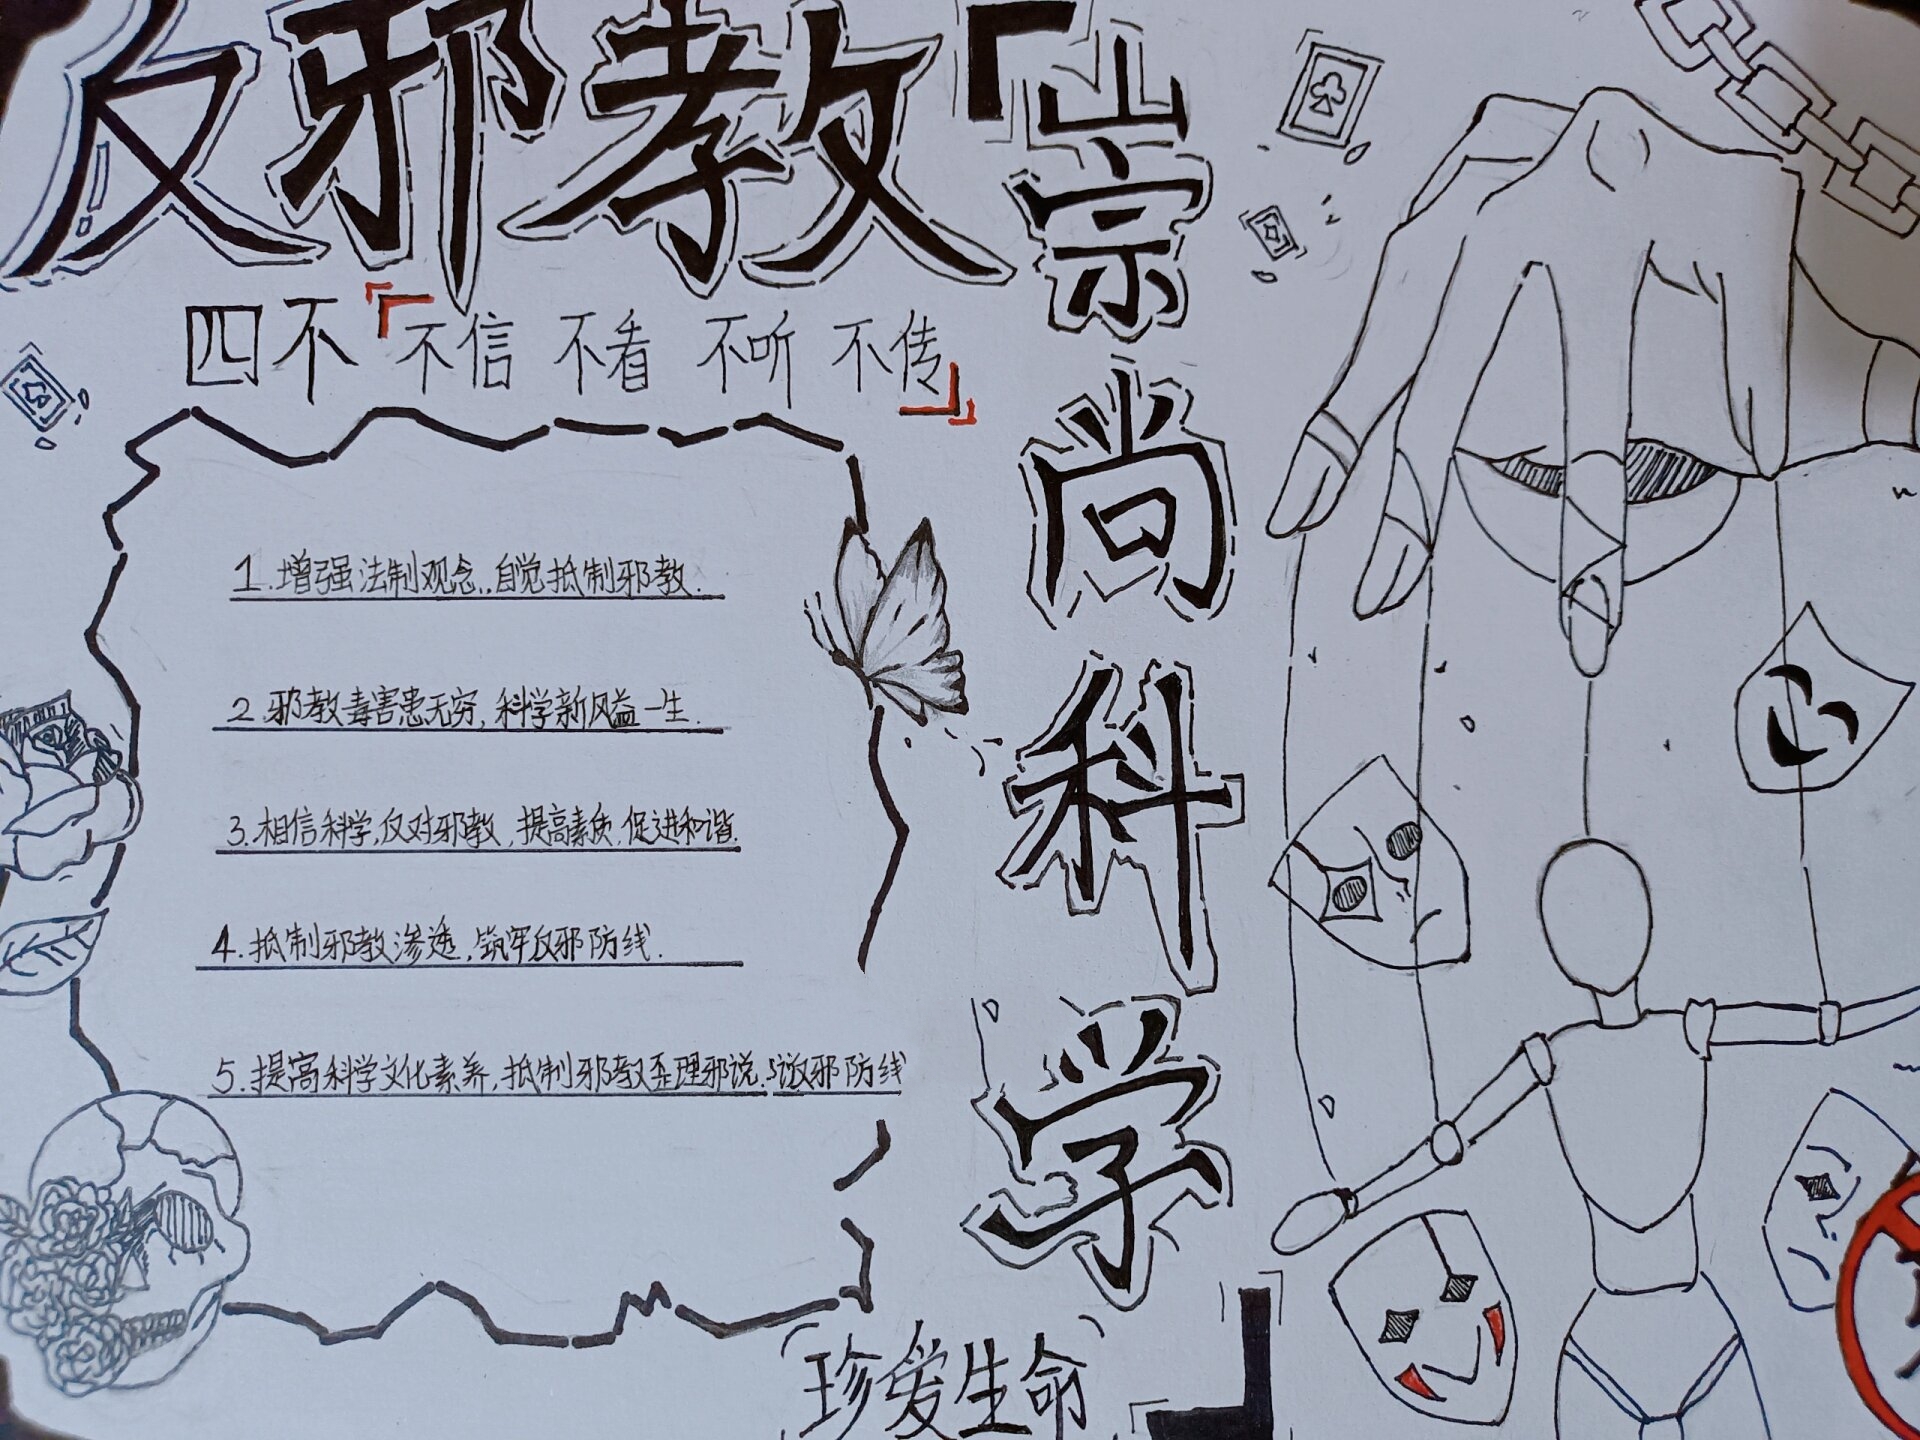 反邪教
崇尚科学
四不「不信 不看 不听 不传」
1.增强法制观念,自觉抵制邪教.
2.邪教毒害患无穷,科学新风益一生.
3.相信科学,反对邪教,提高素质,促进和谐.
4.抵制邪教渗透,筑牢反邪防线.
5.提高科学文化素养,抵制邪教歪理邪说.邪防线
珍爱生命